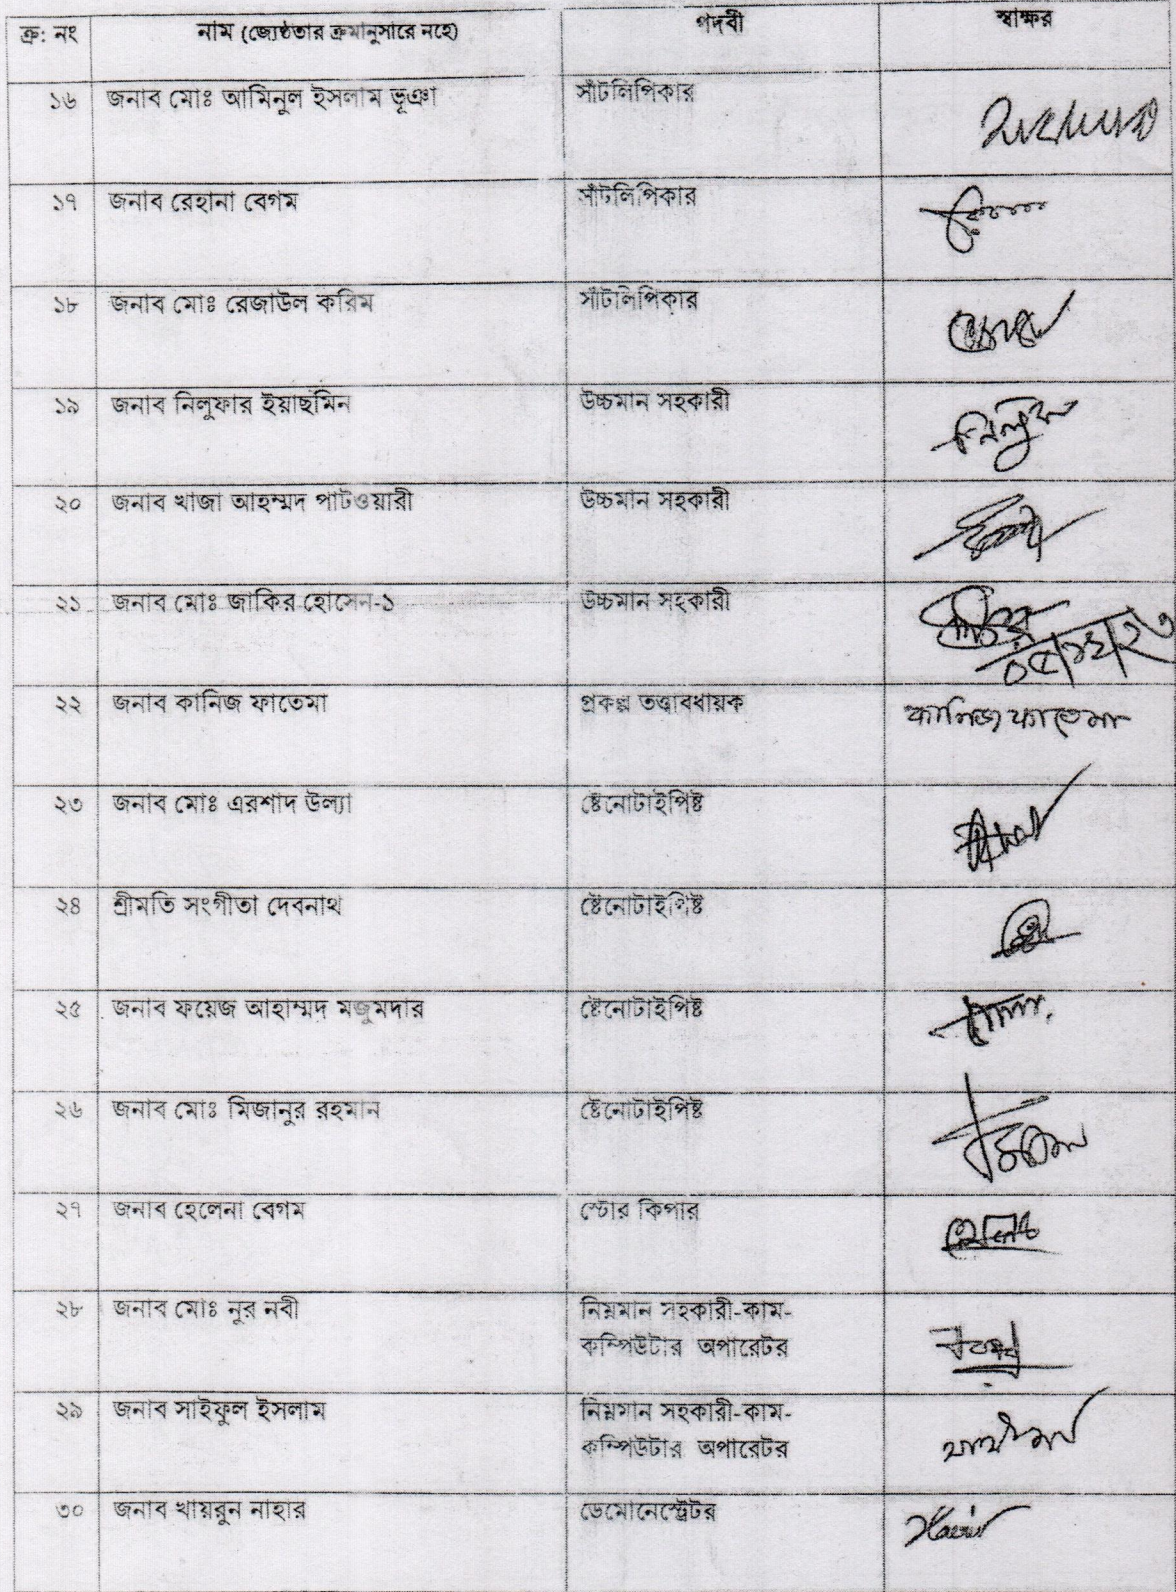 ক্র: নং নাম (জ্যেষ্ঠতার ক্রমানুসারে নহে) পদবী স্বাক্ষর
১৬ জনাব মোঃ আমিনুল ইসলাম ভূঞা সাঁটলিপিকার
১৭ জনাব রেহানা বেগম সাঁটলিপিকার
১৮ জনাব মোঃ রেজাউল করিম সাঁটলিপিকার
১৯ জনাব নিলুফার ইয়াছমিন উচ্চমান সহকারী
২০ জনাব খাজা আহম্মদ পাটওয়ারী উচ্চমান সহকারী
২১ জনাব মোঃ জাকির হোসেন-১ উচ্চমান সহকারী
২২ জনাব কানিজ ফাতেমা প্রকল্প তত্ত্বাবধায়ক কানিজ ফাতেমা
২৩ জনাব মোঃ এরশাদ উল্যা ষ্টেনোটাইপিষ্ট
২৪ শ্রীমতি সংগীতা দেবনাথ ষ্টেনোটাইপিষ্ট
২৫ জনাব ফয়েজ আহাম্মদ মজুমদার ষ্টেনোটাইপিষ্ট
২৬ জনাব মোঃ মিজানুর রহমান ষ্টেনোটাইপিষ্ট
২৭ জনাব হেলেনা বেগম স্টোর কিপার
২৮ জনাব মোঃ নুর নবী নিম্নমান সহকারী-কাম-
কম্পিউটার অপারেটর
২৯ জনাব সাইফুল ইসলাম নিম্নমান সহকারী-কাম-
কম্পিউটার অপারেটর
৩০ জনাব খায়রুন নাহার ডেমোনেস্ট্রেটর